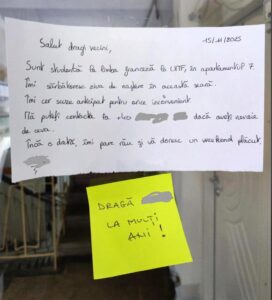 15/11/2025
Salut dragi vecini,
Sunt studentă la limba franceză la UVTF, în apartamentul 7.
Îmi sărbătoresc ziua de naștere în această seară.
Îmi cer scuze anticipat pentru orice inconvenient.
Mă puteți contacta la +40 dacă aveți nevoie
de ceva.
Încă o dată, îmi pare rău și vă doresc un weekend plăcut.
DRAGĂ
LA MULȚI
ANI!